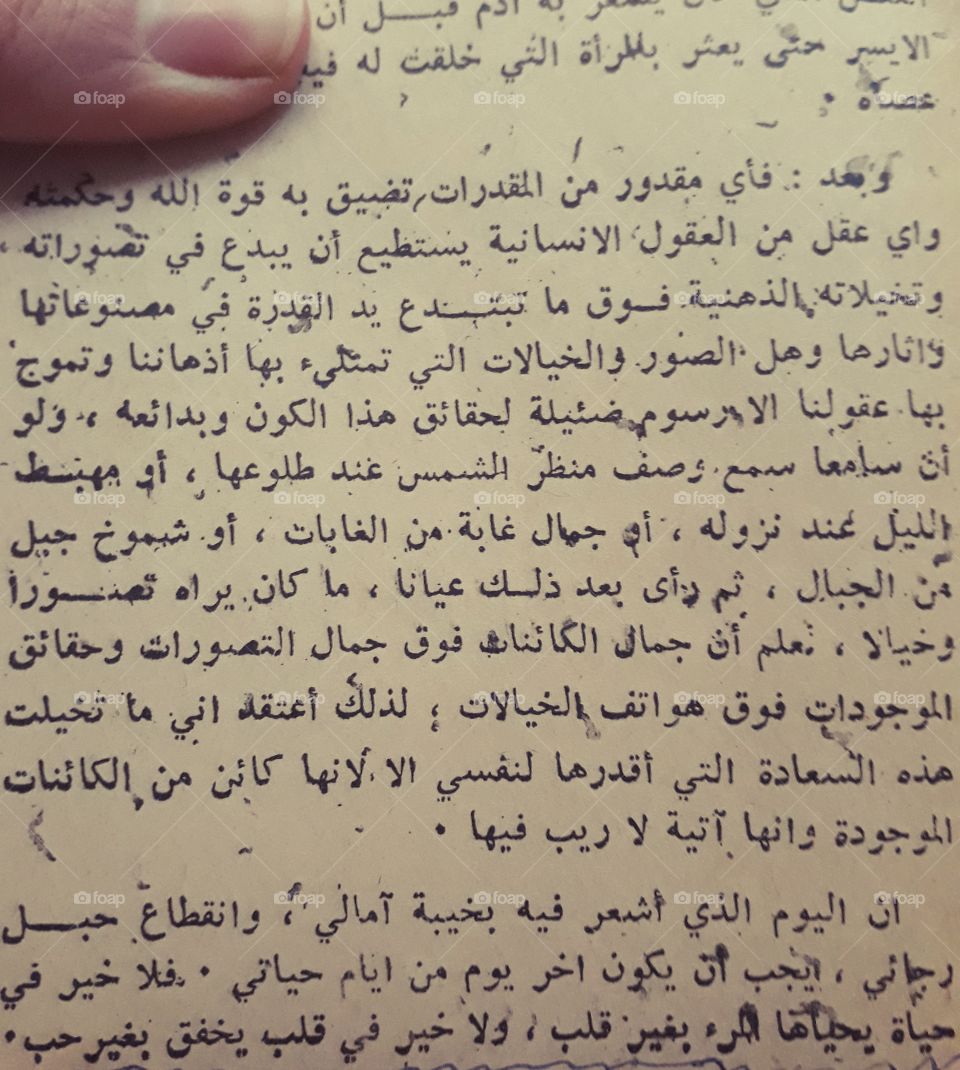 يشعر به آدم قبل أن
الايسر حتى يعثر بالمرأة التي خلقت له
وبعد : فأي مقدور من المقدرات تضيق به قوة الله وحكمته
واي عقل من العقول الانسانية يستطيع أن يبدع في تصوراته ،
وتخيلاته الذهنية فوق ما تبتدع يد القدرة في مصنوعاتها
واثارها وهل الصور والخيالات التي تمتلىء بها أذهاننا وتموج
بها عقولنا الا رسوم ضئيلة لحقائق هذا الكون وبدائعه ، ولو
أن سامعا سمع وصف منظر الشمس عند طلوعها ، أو مهبط
الليل عند نزوله ، أو جمال غابة من الغابات ، أو شموخ جبل
من الجبال ، ثم رأى بعد ذلك عيانا ، ما كان يراه تصورا
وخيالا ، لعلم أن جمال الكائنات فوق جمال التصورات وحقائق
الموجودات فوق هواتف الخيالات ، لذلك أعتقد اني ما تخيلت
هذه السعادة التي أقدرها لنفسي الا لانها كائن من الكائنات
الموجودة وانها آتية لا ريب فيها .
ان اليوم الذي أشعر فيه بخيبة آمالي ، وانقطاع حبل
رجائي ، يجب أن يكون اخر يوم من ايام حياتي . فلا خير في
حياة يحياها المرء بغير قلب ، ولا خير في قلب يخفق بغير حب .